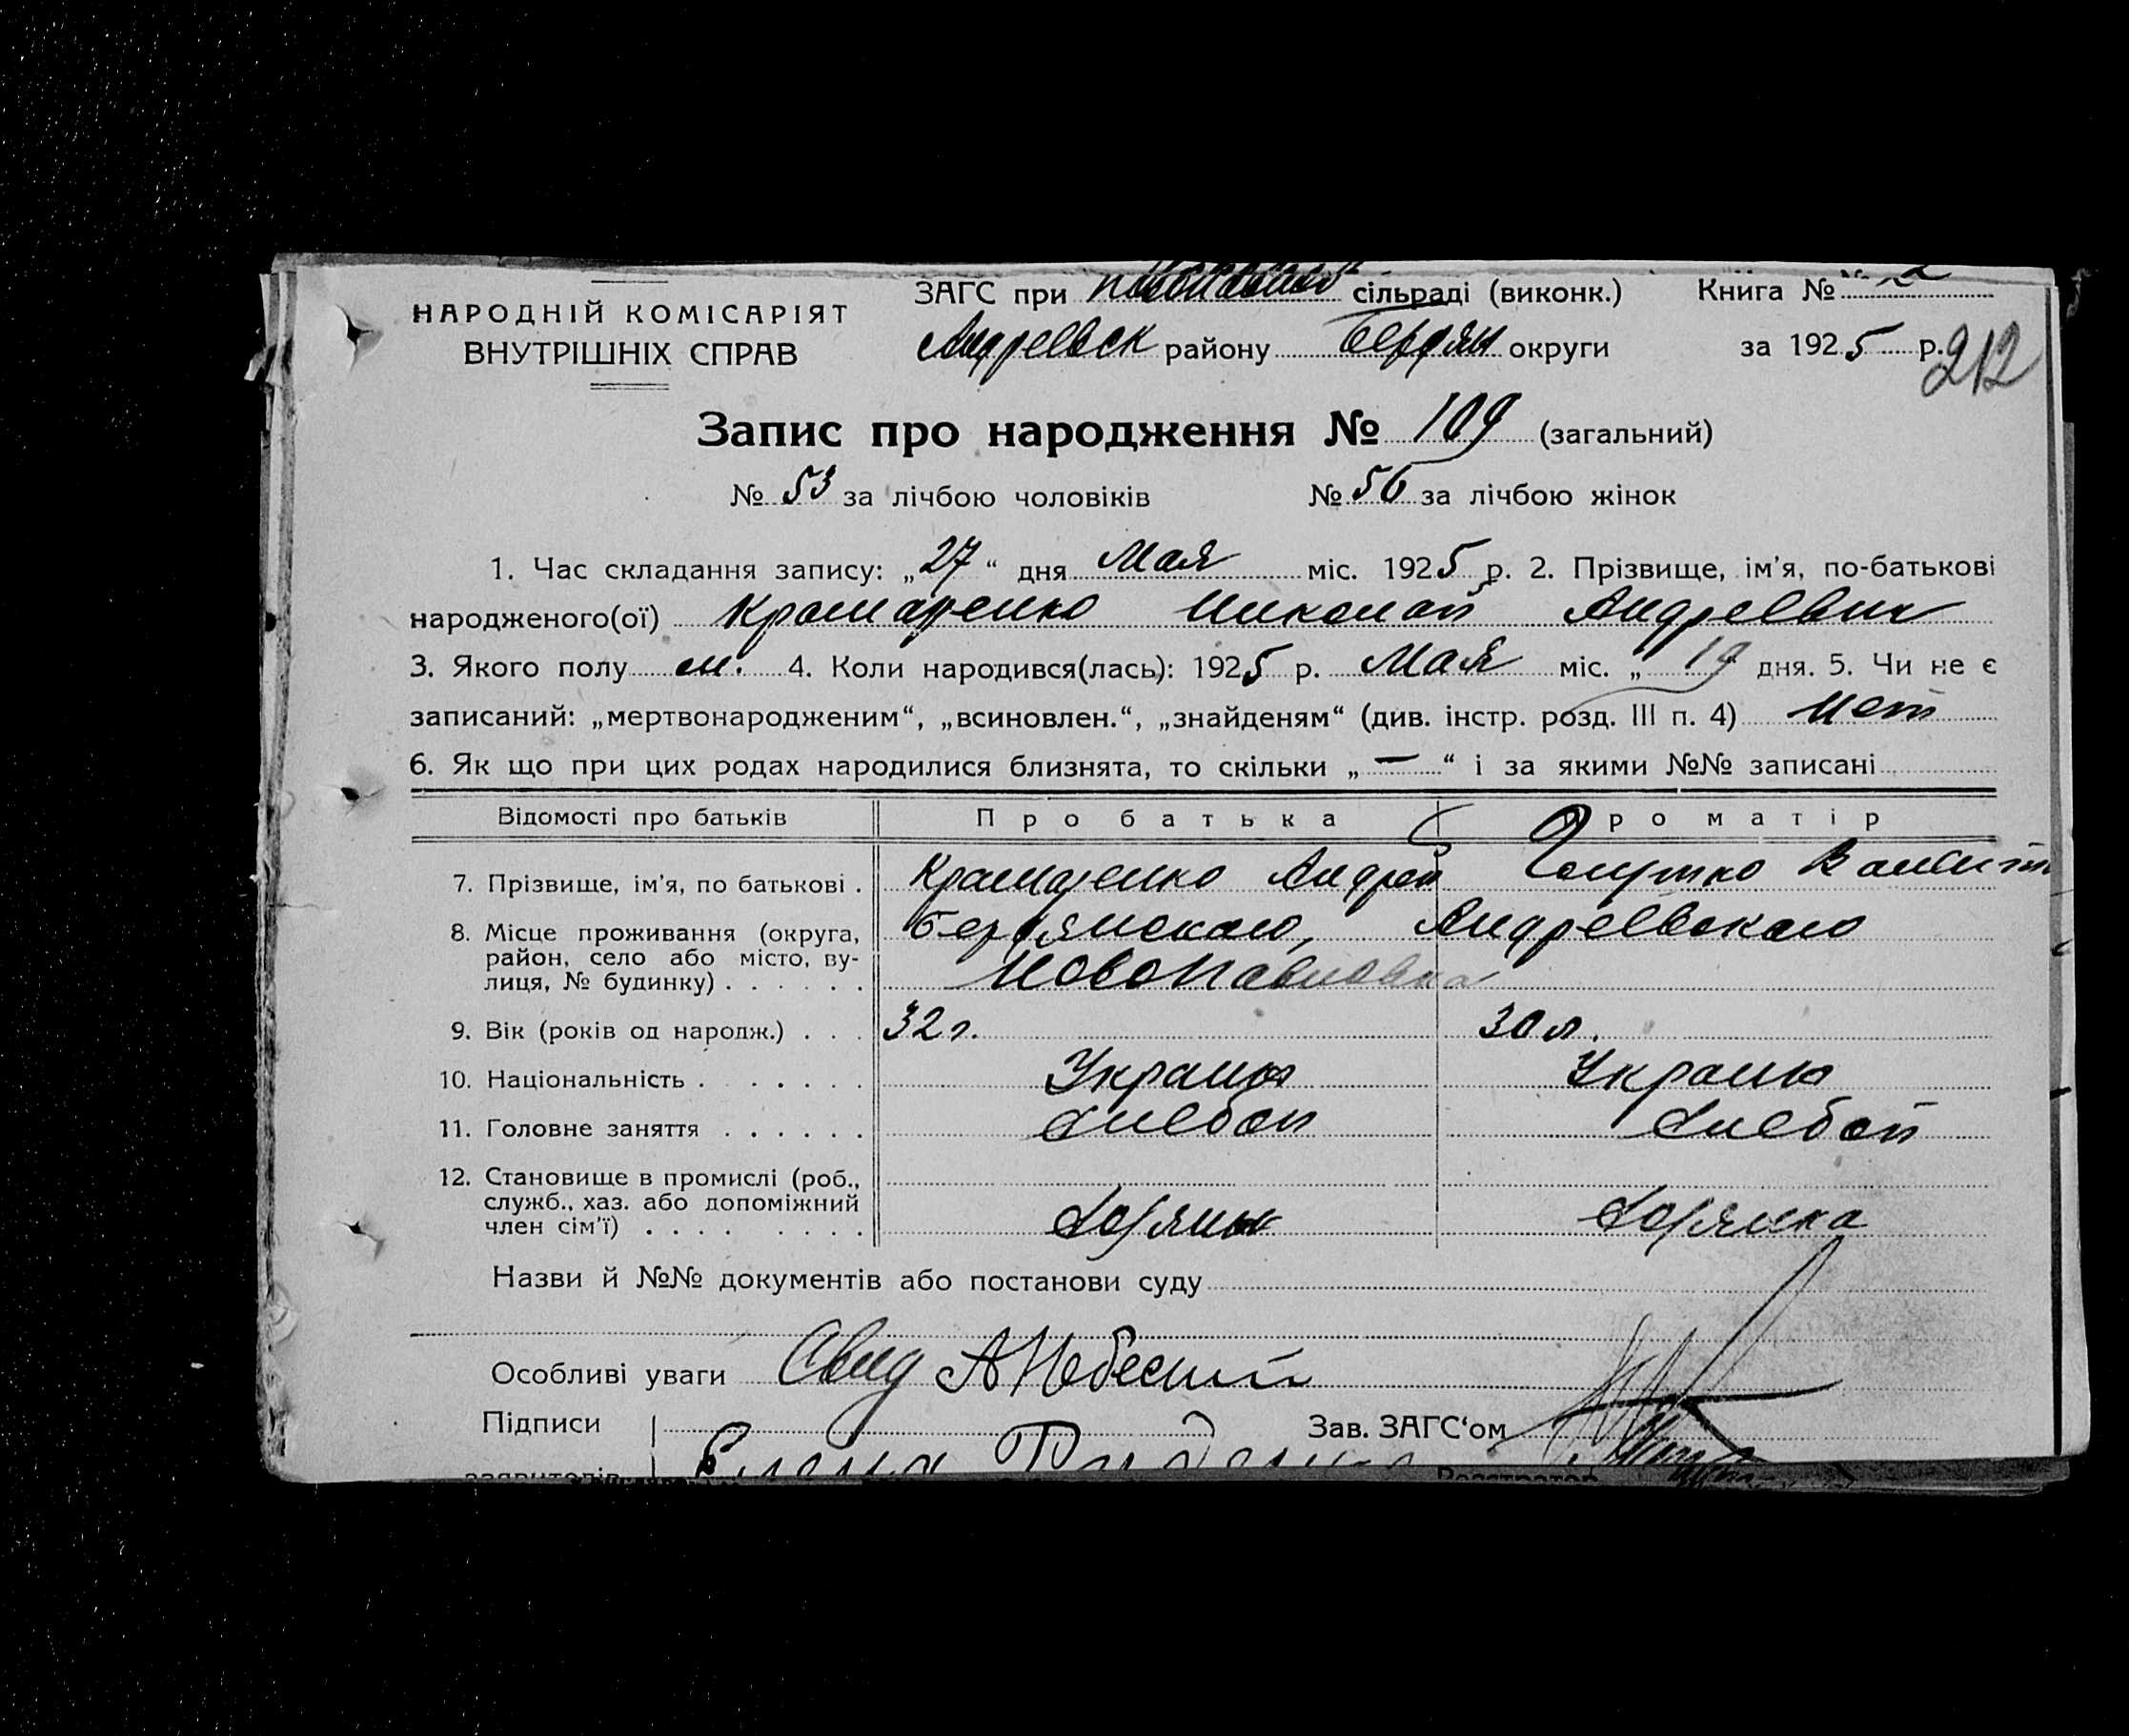 НАРОДНІЙ КОМІСАРІЯТ
ВНУТРІШНІХ СПРАВ
ЗАГС при сільраді (виконк.) Книга №
Андреевск району Бердян округи за 1925 р.
212
Запис про народження № 109 (загальний)
№ 53 за лічбою чоловіків № 56 за лічбою жінок
1. Час складання запису: „27“ дня Мая міс. 1925 р. 2. Прізвище, ім'я, по-батькові
народженого(ої) Крамаренко Николай Андреевич
3. Якого полу м. 4. Коли народився(лась): 1925 р. Мая міс. „19 дня. 5. Чи не є
записаний: „мертвонародженим“, „всиновлен.“, „знайденям“ (див. інстр. розд. III п. 4) Нет
6. Як що при цих родах народилися близнята, то скільки „—“ і за якими №№ записані
Відомості про батьків Про батька Про матір
7. Прізвище, ім'я, по батькові . Крамаренко Андрей
8. Місце проживання (округа, Бердянского, Андреевского
район, село або місто, ву- Новопавловка
лиця, № будинку) . . . . . .
9. Вік (років од народж.) . . . 32 г. 30 л.
10. Національність . . . . . . . Украин Украин
11. Головне заняття . . . . . . Хлебоп Хлебоп
12. Становище в промислі (роб.,
служб., хаз. або допоміжний
член сім'ї) . . . . . . . . Хозяин Хозяика
Назви й №№ документів або постанови суду
Особливі уваги Свид А Небесний
Підписи Зав. ЗАГС'ом
заявителів Елена Реєстратор